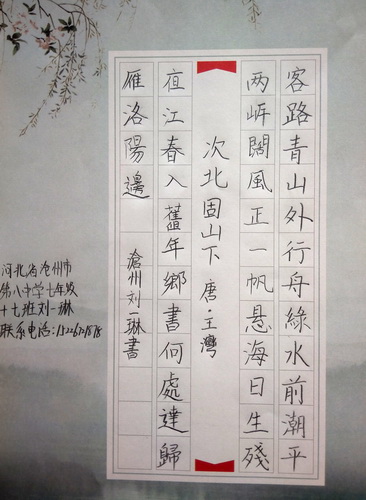 客路青山外行舟綠水前潮平
两岸闊風正一帆悬海日生殘
次北固山下 唐·王灣
夜江春入舊年鄉書何處達歸
雁洛陽邊 滄州刘一琳書
河北省沧州市
第八中学七年级
十七班刘一琳
联系电话: